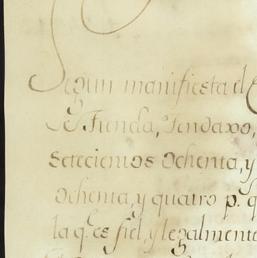 Segun manifiesta el
Setecientos Ochenta, y
Ochenta, y quatro p.s q
la q.e es fiel, y legalmente